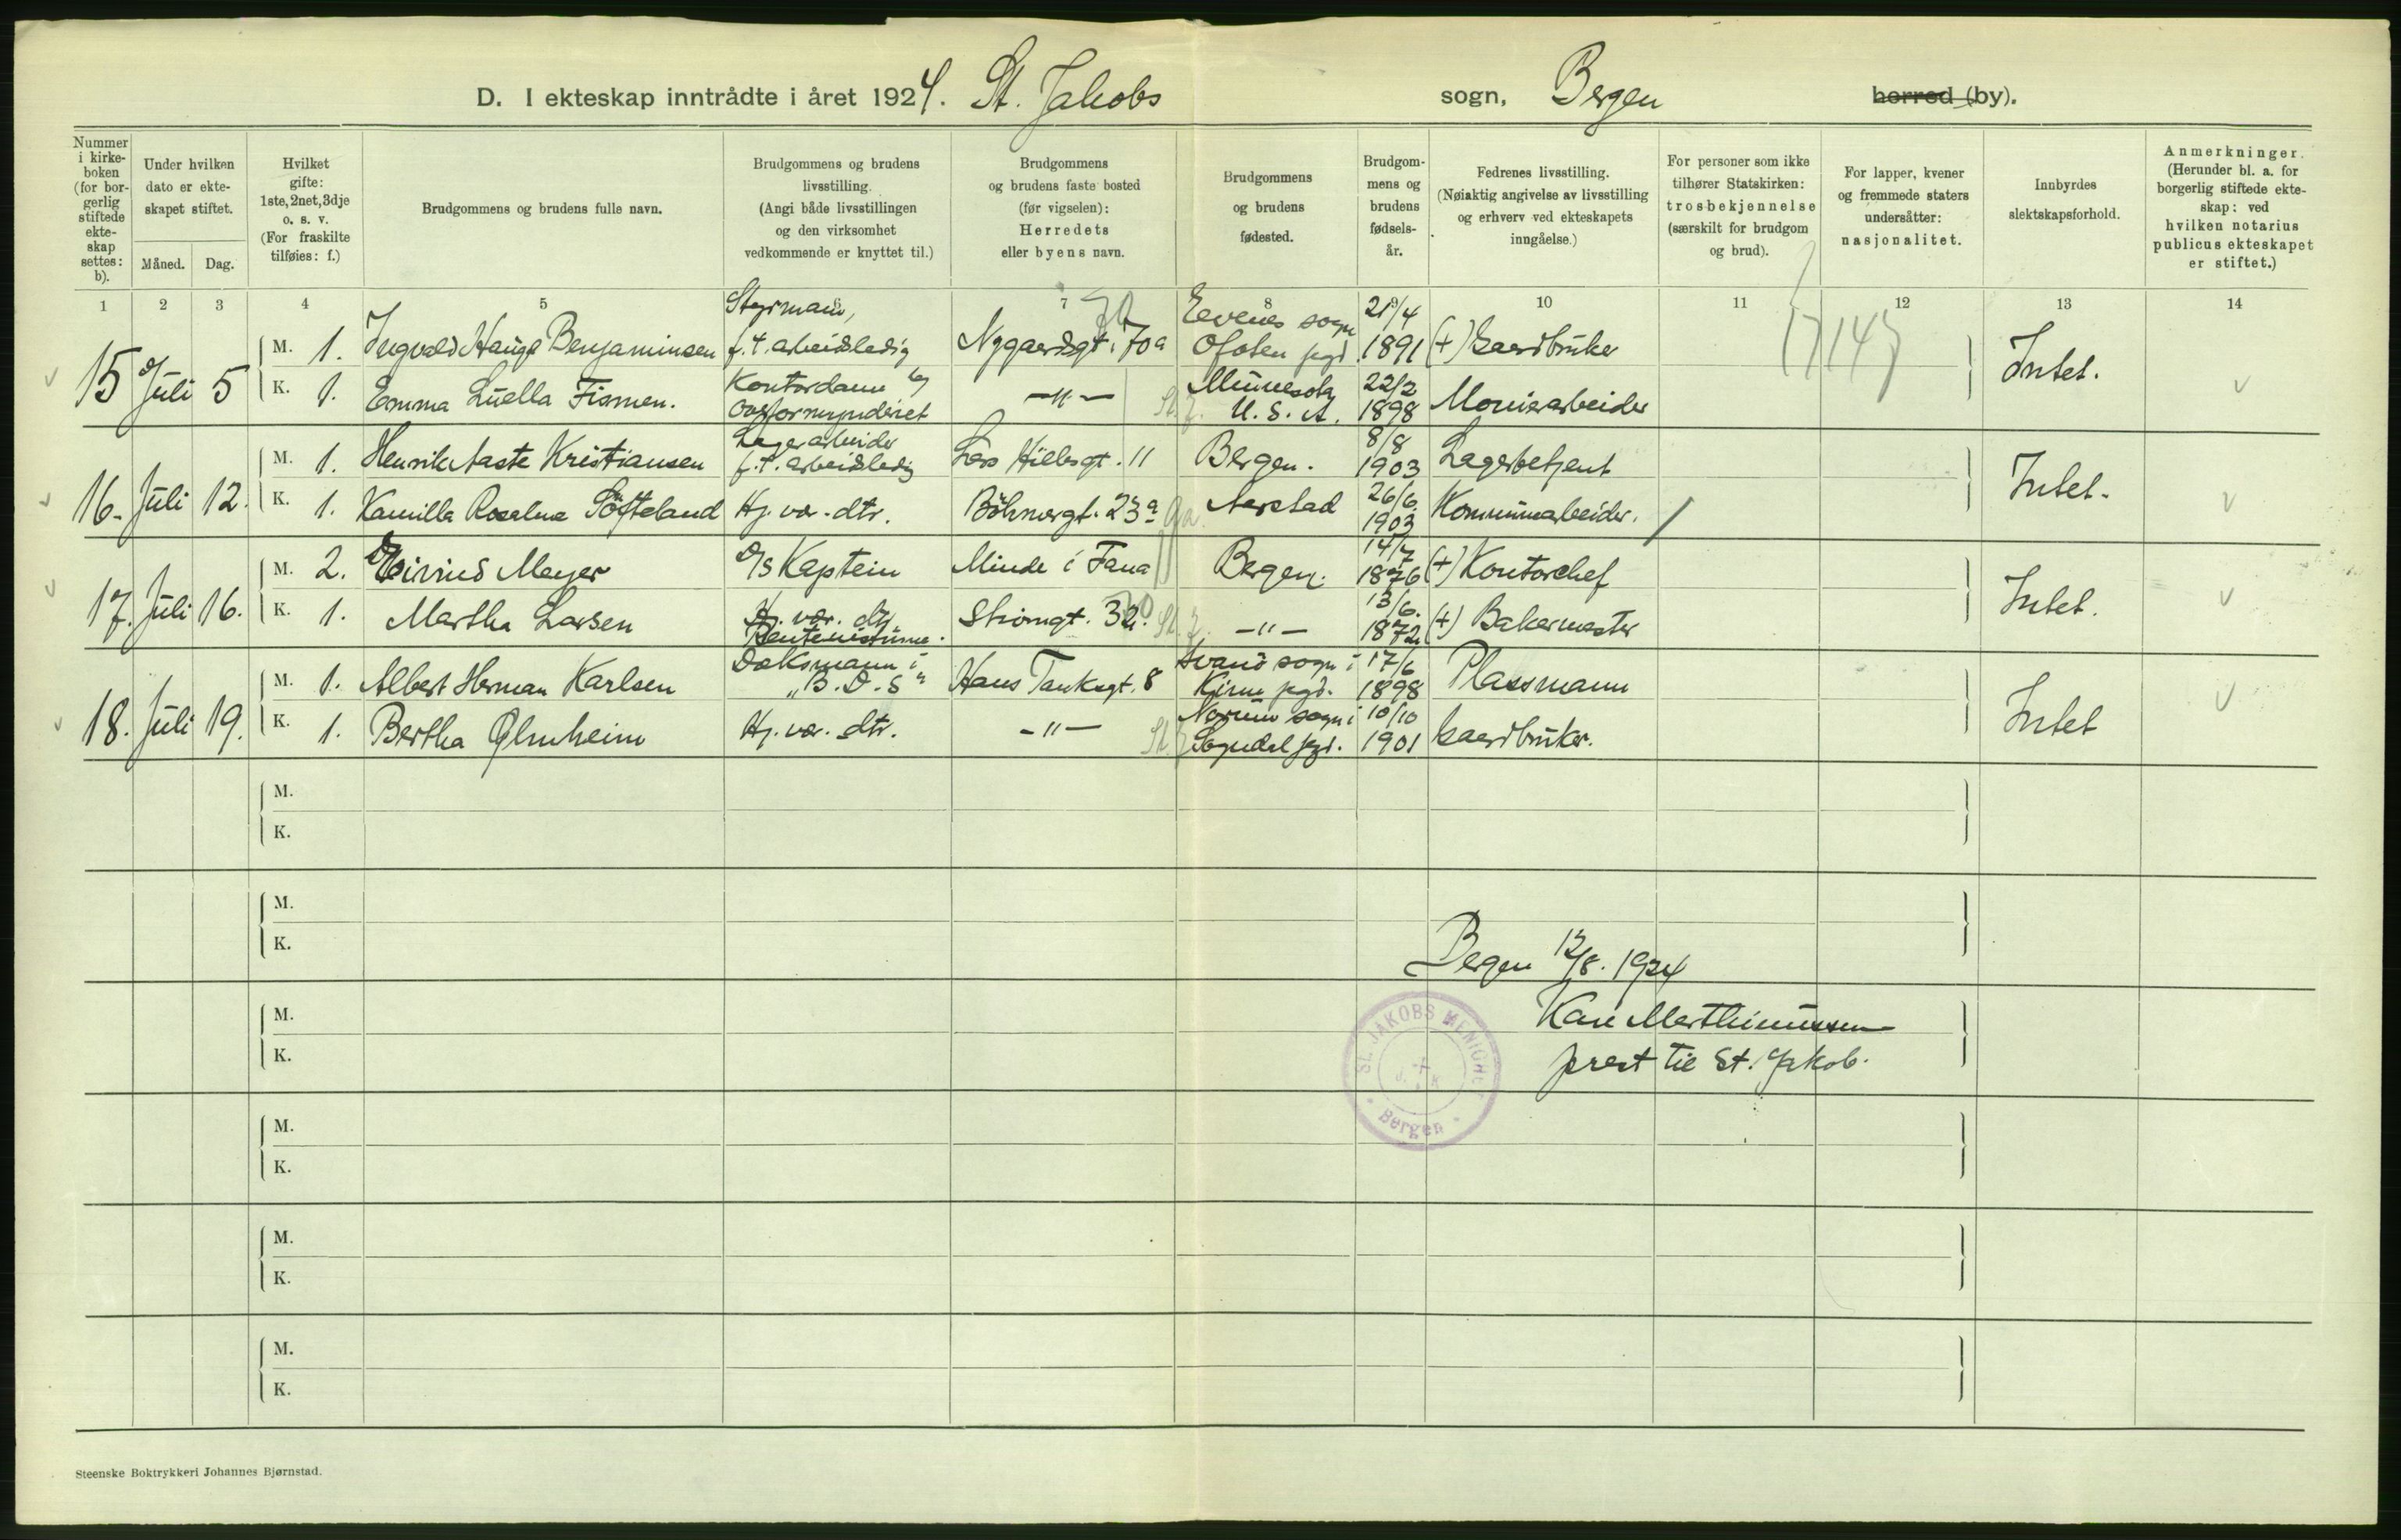 D. I ekteskap inntrådte i året 1924. St. Jakobs sogn, Bergen herred (by).
Nummer i kirkeboken (for borgerlig stiftede ekteskap settes: b).
Under hvilken dato er ekteskapet stiftet.
Måned. Dag.
Hvilket gifte: 1ste, 2net, 3dje o. s. v. (For fraskilte tilføies: f.)
Brudgommens og brudens fulle navn.
Brudgommens og brudens livsstilling. (Angi både livsstillingen og den virksomhet vedkommende er knyttet til.)
Brudgommens og brudens faste bosted (før vigselen): Herredets eller byens navn.
Brudgommens og brudens fødested.
Brudgommens og brudens fødselsår.
Fedrenes livsstilling. (Nøiaktig angivelse av livsstilling og erhverv ved ekteskapets inngåelse.)
For personer som ikke tilhører Statskirken: trosbekjennelse (særskilt for brudgom og brud).
For lapper, kvener og fremmede staters undersåtter: nasjonalitet.
Innbyrdes slektskapsforhold.
Anmerkninger. (Herunder bl. a. for borgerlig stiftede ekteskap: ved hvilken notarius publicus ekteskapet er stiftet.)
1 2 3 4 5 6 7 8 9 10 11 12 13 14
15 Juli 5 M. 1. Ingvald Hauge Benjaminsen Styrmann, f.t. arbeidsledig Nygaardsgt. 70a Evenes sogn Ofoten pgd. 21/4 1891 (+) Gaardbruker Intet.
K. 1. Emma Luella Fismen. Kontordame overformynderiet -"- Minnesota U. S. A. 22/2 1898 Murerarbeider
16. Juli 12. M. 1. Henrik Aaste Kristiansen Lagerarbeider f.t. arbeidsledig Lars Hillesgt. 11 Bergen. 8/8 1903 Lagerbetjent Intet.
K. 1. Kamilla Søfteland Hj. vær. dtr. Böhmergt. 23a Aarstad 26/6. 1903 Kommunearbeider.
17. Juli 16. M. 2. Eivind Meyer D/s Kaptein Minde i Fana Bergen. 14/7 1876 (+) Kontorchef Intet.
K. 1. Martha Larsen Hj. vær. dtr. Rentenistinne. Strømgt. 32. -"- 13/6. 1872 (+) Bakermester
18. Juli 19. M. 1. Albert Herman Karlsen Dæksmann i "B. D. S" Hans Tanksgt. 8 Svanø sogn i Kinn pgd. 17/6 1898 Plassmann Intet
K. 1. Bertha Ølmheim Hj. vær. dtr. -"- Norum sogn i Sogndal pgd. 10/10 1901 Gaardbruker.
M.
K.
M.
K.
Bergen 12/8. 1924
M.
K.
Kaare Marthinussen
prest til St. Jakob.
ST. JAKOBS MENIGHET
Bergen
M.
K.
M.
K.
M.
K.
Steenske Boktrykkeri Johannes Bjørnstad.